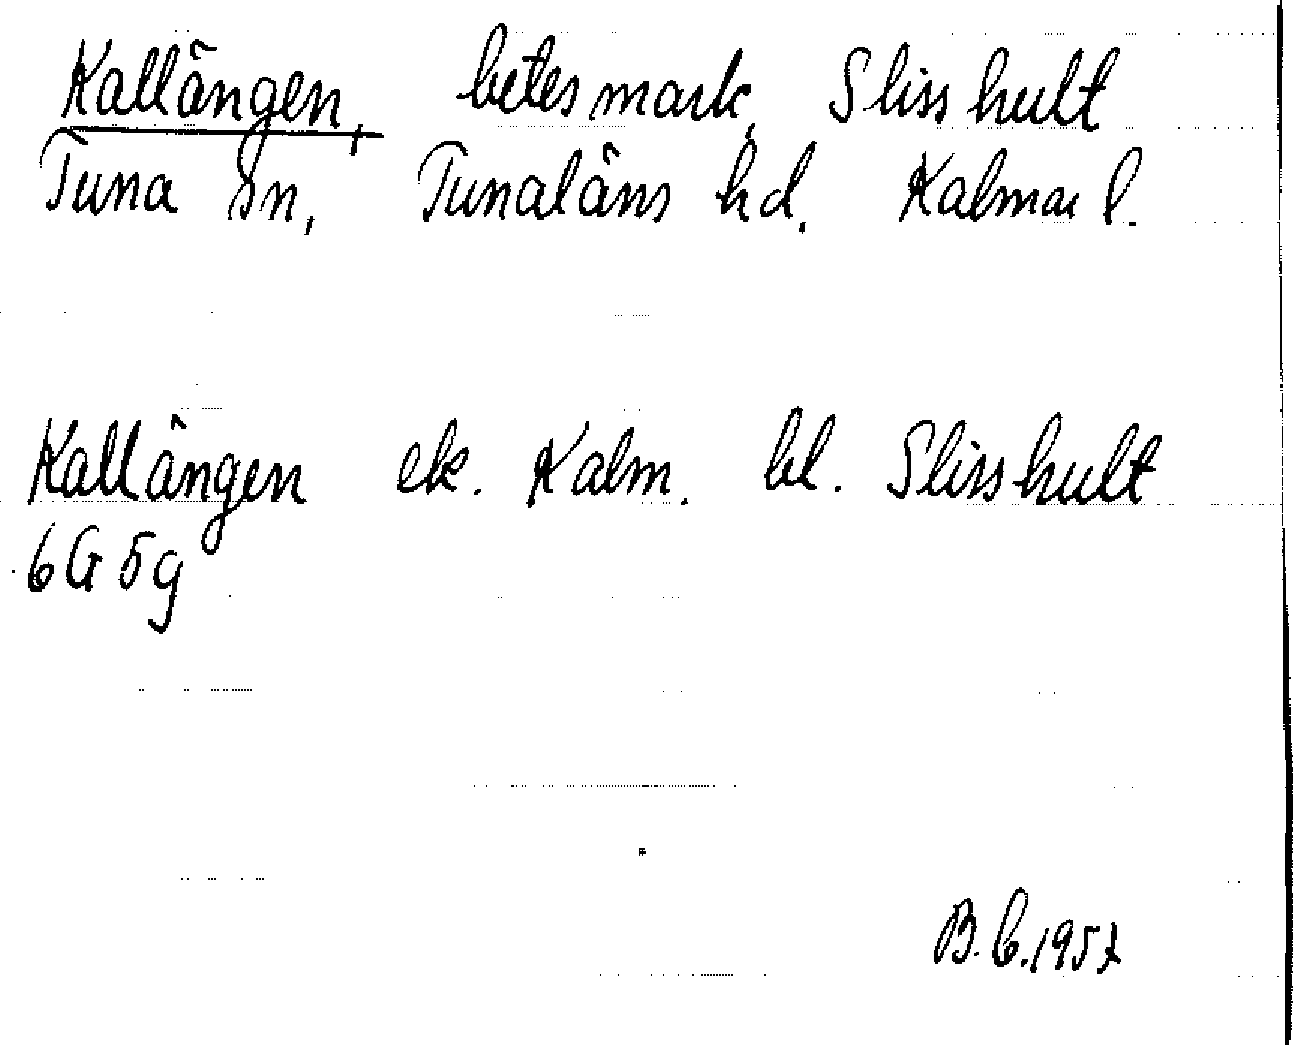 Kallängen, betesmark, Slisshult
Tuna sn, Tunaläns hd. Kalmar l.
Kallängen ek. Kalm. bl. Slisshult
6G5g
B.C.1957